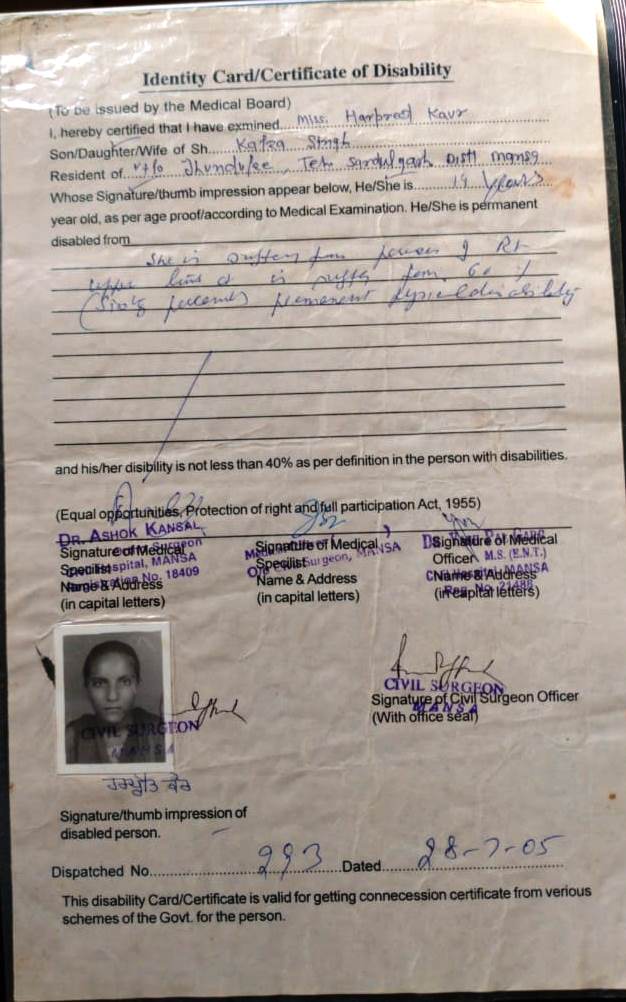 Identity Card/Certificate of Disability
(To be issued by the Medical Board)
I, hereby certified that I have exmined Miss. Harpreet Kaur
Son/Daughter/Wife of Sh. Singh
Resident of Jhunduke, Teh Sardulgarh Distt Mansa
Whose Signature/thumb impression appear below, He/She is 19 Years
year old, as per age proof/according to Medical Examination. He/She is permanent
disabled from
She is suffering from Rt
upper limb from 60 %
(Sixty permanent disability
and his/her disibility is not less than 40% as per definition in the person with disabilities.
(Equal opportunities, Protection of right and full participation Act, 1955)
DR. ASHOK KANSAL
Signature of Medical Signature of Medical Signature of Medical
Surgeon Surgeon, MANSA
Specilist Specilist Officer M.S. (E.N.T.)
Hospital, MANSA MANSA
Name & Address Name & Address Name & Address
No. 18409
(in capital letters) (in capital letters) (in capital letters)
CIVIL SURGEON
MANSA
Signature of Civil Surgeon Officer
(With office seal)
CIVIL SURGEON
MANSA
ਹਰਪ੍ਰੀਤ ਕੌਰ
Signature/thumb impression of
disabled person.
Dispatched No. 293 Dated 28-7-05
This disability Card/Certificate is valid for getting connecession certificate from verious
schemes of the Govt. for the person.